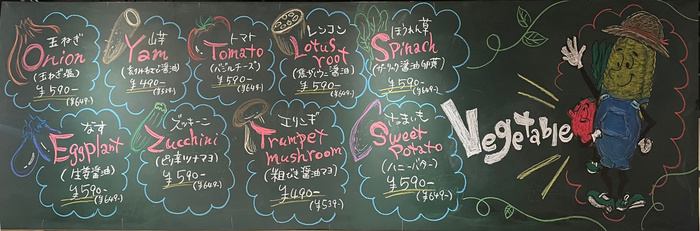 玉ねぎ
Onion
(玉ねぎ塩)
¥590-
(¥649-)
山芋
Yam
醤油)
¥490-
(¥539-)
トマト
Tomato
(バジルチーズ)
¥590-
(¥649-)
レンコン
Lotus
root
醤油)
¥590-
(¥649-)
ほうれん草
Spinach
(ガーリック醤油
¥590-
(¥649-)
なす
Eggplant
(生姜醤油)
¥590-
(¥649-)
ズッキーニ
Zucchini
ツナマヨ)
¥590-
(¥649-)
エリンギ
Trumpet
mushroom
醤油マヨ)
¥490-
(¥539-)
さつまいも
Sweet
Potato
(ハニーバター)
¥590-
(¥649-)
Vegetable